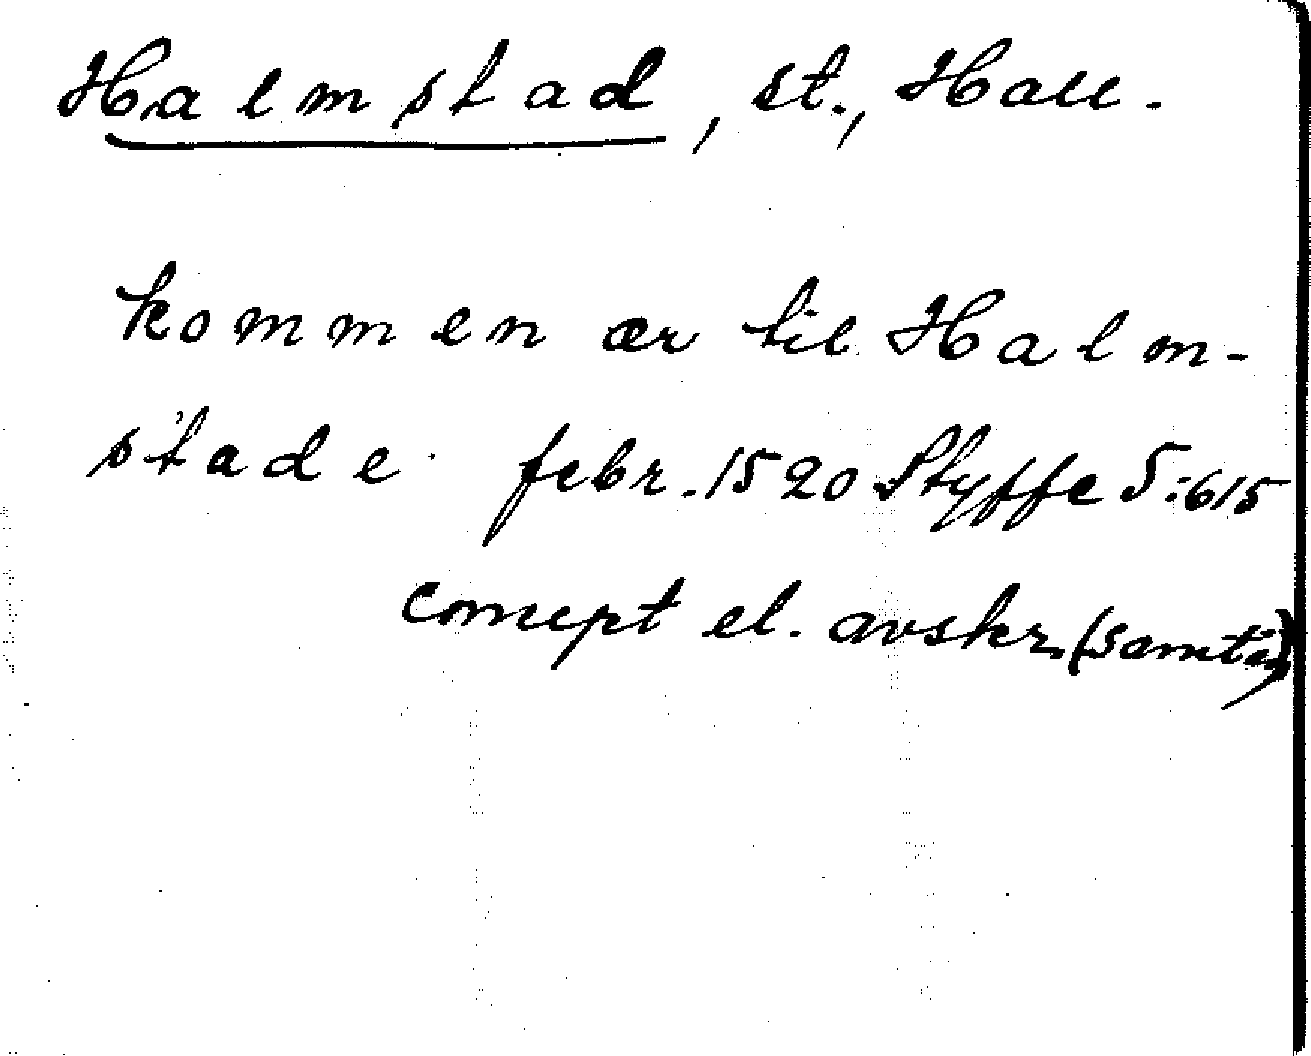 Halmstad, st., Hall.
kommen ær til Halm-
stade febr. 1520 Styffe 5:615
concept el. avskr. (samtida)